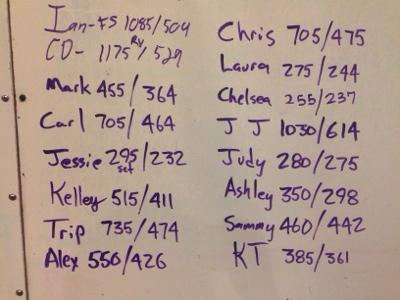 Ian-FS 1085/504
CD- 1175 RV/529
Mark 455/364
Carl 705/464
Jessie 295/232
set
Kelley 515/411
Trip 735/474
Alex 550/426
Chris 705/475
Laura 275/244
Chelsea 255/237
JJ 1030/614
Judy 280/275
Ashley 350/298
Sammy 460/442
KT 385/361